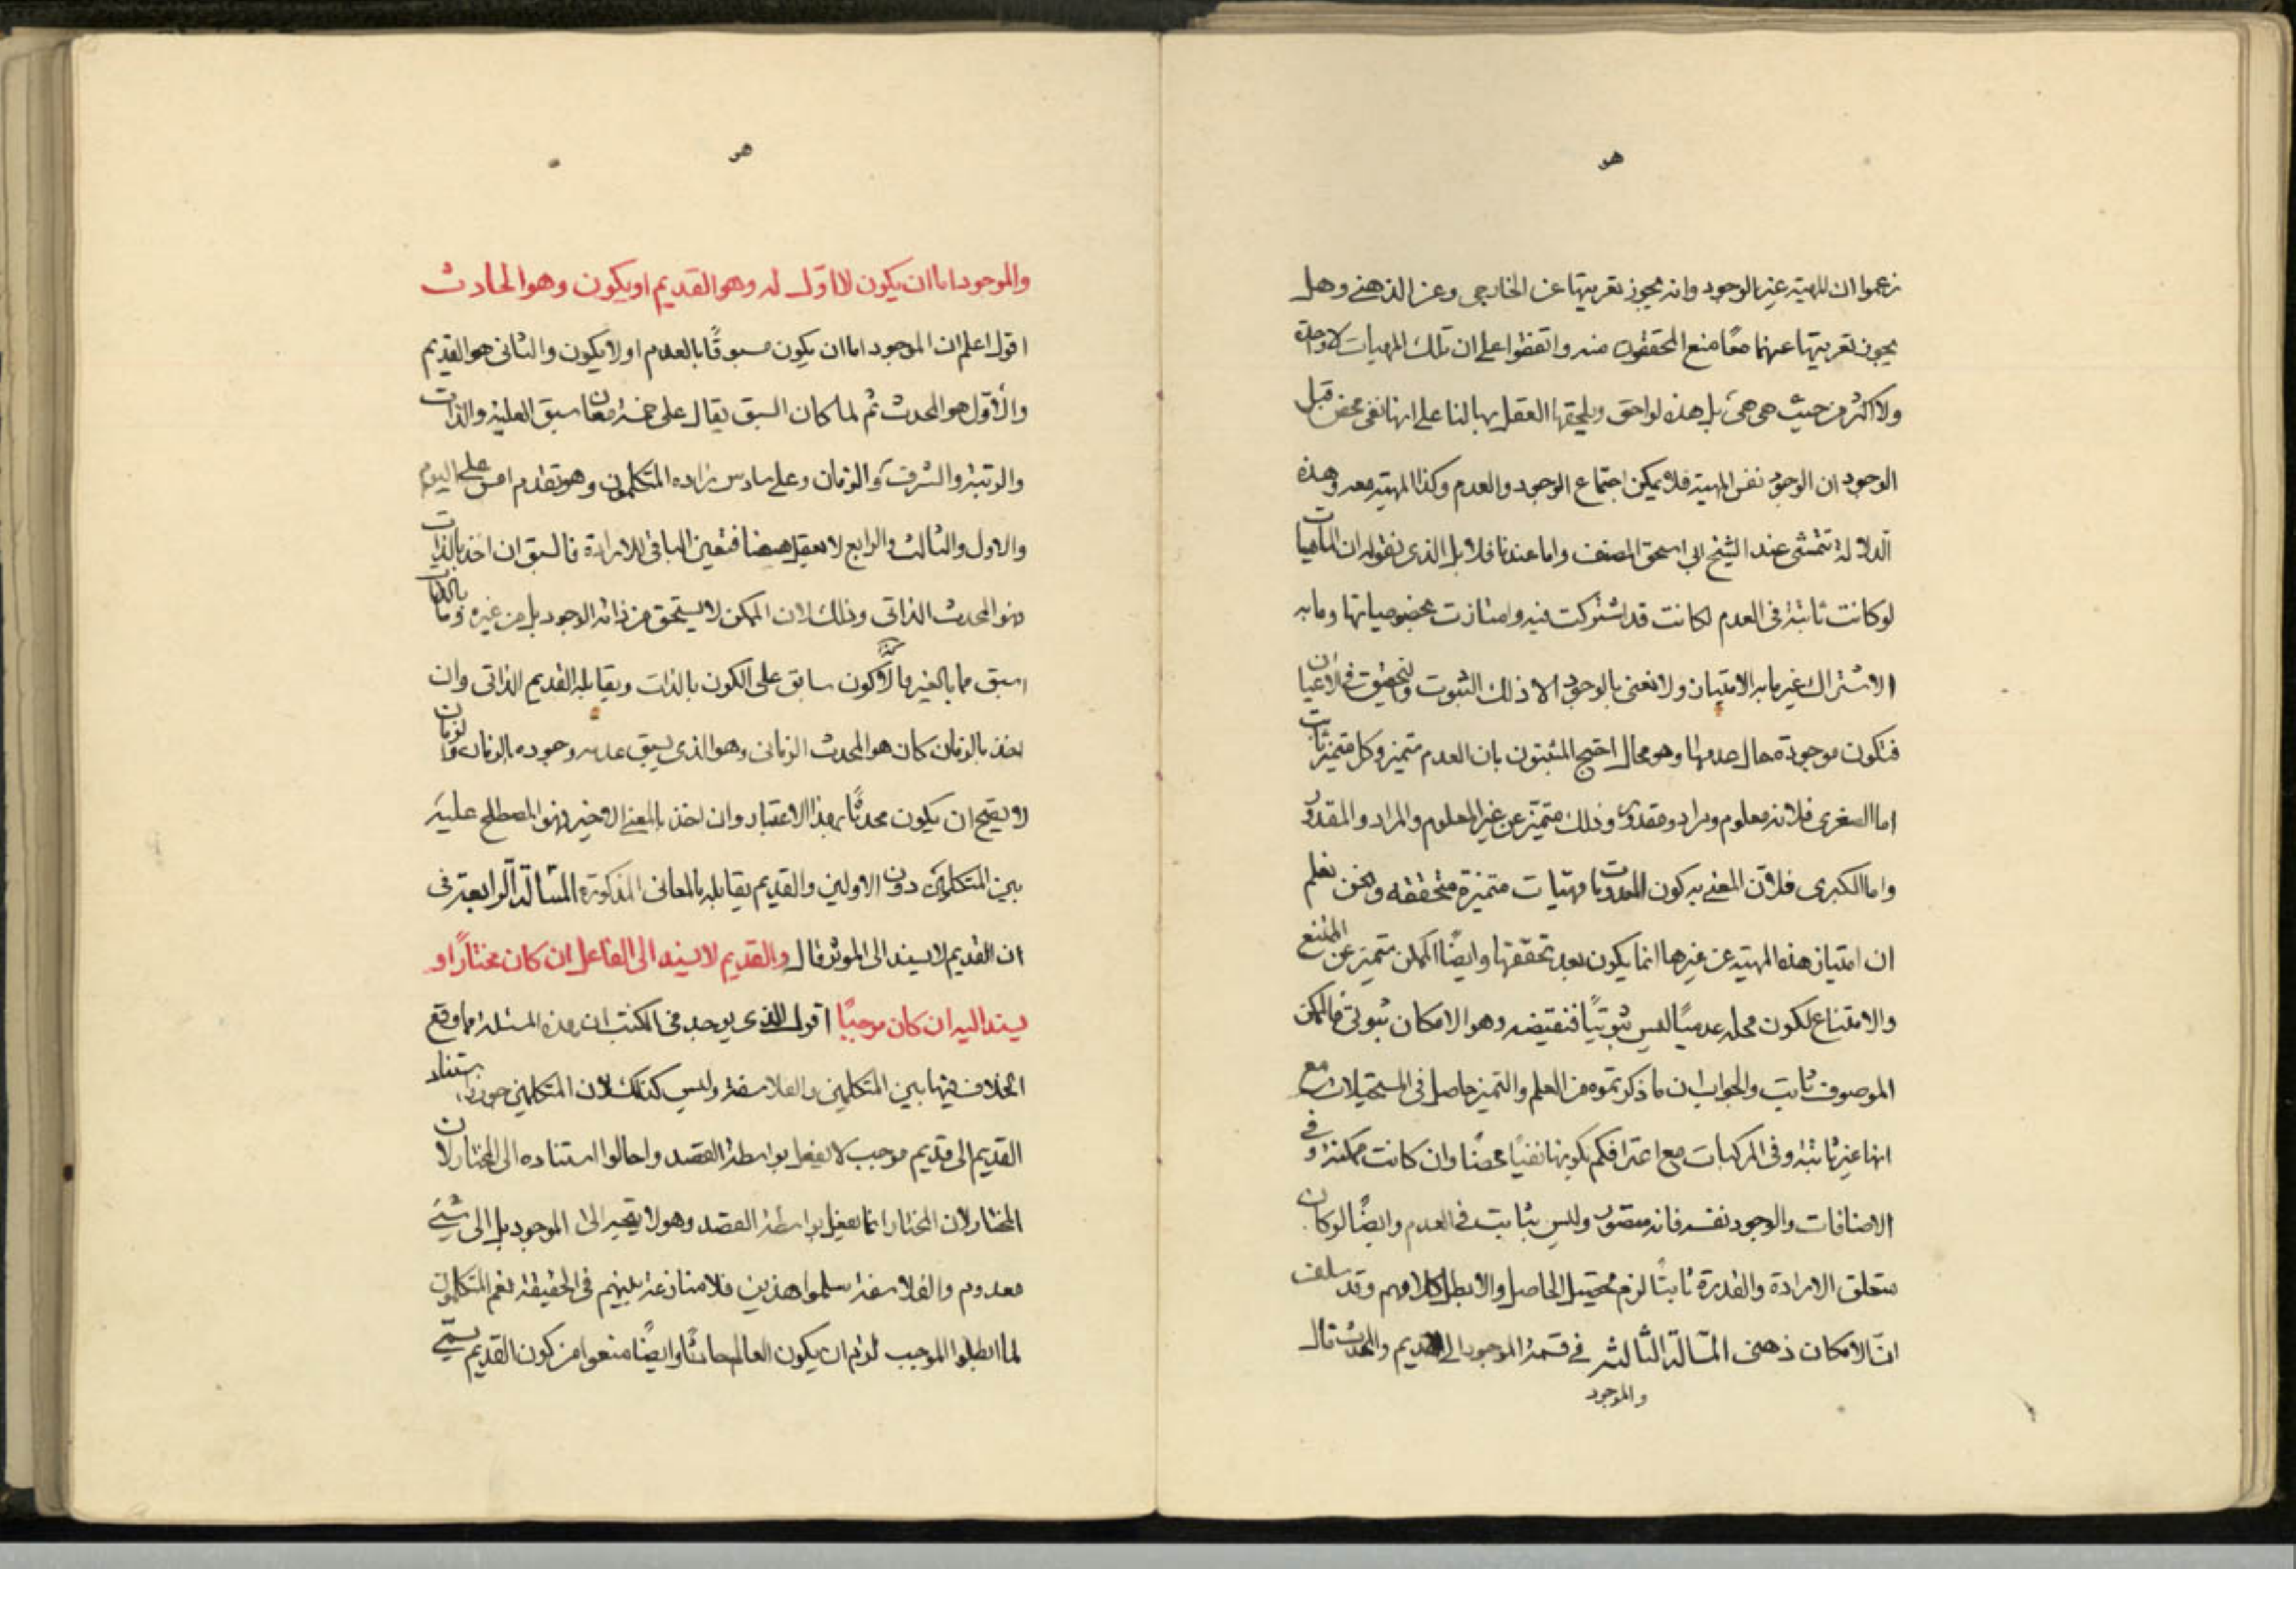 هو
زعموا ان للمهية غير الوجود وانه يجوز تعريتها عن الخارجى وعن الذهنى وهل
يجوز تعريتها عنهما معًا منع المحققون منه واتفقوا على ان تلك المهيات لا واحدة
ولا اكثر من حيث هى هى بل هذه لواحق ويلحقها العقل بها لنا على انها نفى محض قبل
الوجود ان الوجود نفس المهية فلا يمكن اجتماع الوجود والعدم وكذا المهية معه وهذه
الدلالة تتمشى عند الشيخ ابى اسحق المصنف واما عندنا فلا بل الذى نقوله ان الماهيات
لو كانت ثابتة فى العدم لكانت قد اشتركت فيه وامتازت بخصوصياتها وما به
الاشتراك غير ما به الامتياز ولا نعنى بالوجود الا ذلك الثبوت والتحقيق فى الاعيان
فتكون موجودة حال عدمها وهو محال احتج المثبتون بان العدم متميز وكل متميز ثابت
اما الصغرى فلانه معلوم ومراد ومقدور وذلك متميّز عن غير المعلوم والمراد والمقدور
واما الكبرى فلانّ المعنى به كون المعدومات مهيّات متميزة متحققه ونحن نعلم
ان امتياز هذه المهية عن غيرها انما يكون بعد تحققها وايضًا الممكن متميز عن الممتنع
والامتناع لكون محله عدميًا ليس ثبوتيًا فنقيضه وهو الامكان ثبوتى فالممكن
الموصوف ثابت والجواب ان ما ذكرتموه من العلم والتميز حاصل فى المستحيلات مع
انها غير ثابتة وفى المركبات مع اعترافكم بكونها نفيًا محضًا وان كانت ممكنة وفى
الاضافات والوجود نفسه فانه متصور وليس بثابت فى العدم وايضًا لو كان
متعلق الارادة والقدرة ثابتًا لزم تحصيل الحاصل والا بطل كلامهم وقد سلف
انّ الامكان ذهنى المسألة الثالثة فى قسمة الموجود الى القديم والمحدث قال
والموجود
هو
والموجود اما ان يكون لا اوّل له وهو القديم او يكون وهو الحادث
اقول اعلم ان الموجود اما ان يكون مسبوقًا بالعدم او لا يكون والثانى هو القديم
والأوّل هو المحدث ثم لما كان السبق يقال على خمسة معان سبق العلية والذات
والرتبة والشرف والزمان وعلى سادس زاده المتكلمون وهو تقدم امس على اليوم
والاول والثالث والرابع لا يعقل هيهنا فتعين الباقى للارادة فالسبق ان اخذ بالذات
فهو المحدث الذاتى وذلك لان الممكن لا يستحق من ذاته الوجود بل من غيره وما بالذات
اسبق مما بالغير فاللاكون سابق على الكون بالذات ويقابله القديم الذاتى وان
اخذ بالزمان كان هو المحدث الزمانى وهو الذى يسبق عدمه وجوده بالزمان والزمان
لا يصح ان يكون محدثًا بهذا الاعتبار وان اخذ بالمعنى الاخير فهو المصطلح عليه
بين المتكلمين دون الاولين والقديم يقابله بالمعانى المذكورة المسألة الرابعة فى
ان القديم لا يسند الى المؤثر قال والقديم لا يسند الى الفاعل ان كان مختارًا او
يسند اليه ان كان موجبًا اقول الذى يوجد فى الكتب ان هذه المسئلة مما وقع
الخلاف فيها بين المتكلمين والفلاسفة وليس كذلك لان المتكلمين جوزوا استناد
القديم الى قديم موجب لا يفعل بواسطة القصد واحالوا استناده الى المختار لان
المختار لان المختار انما يفعل بواسطة القصد وهو لا يتجه الى الموجود بل الى شئ
معدوم والفلاسفة سلموا هذين فلا منازعة بينهم فى الحقيقة نعم المتكلمون
لما ابطلوا الموجب لزم ان يكون العالم حادثًا وايضًا منعوا من كون القديم يسمى